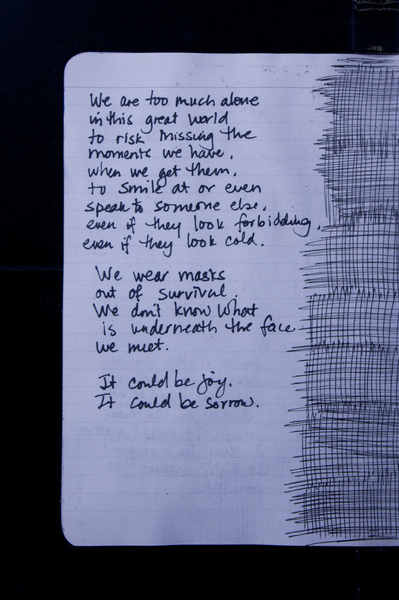 We are too much alone
in this great world
to risk missing the
moments we have,
when we get them,
to smile at or even
speak to someone else,
even if they look forbidding,
even if they look cold.
We wear masks
out of survival.
We don't know what
is underneath the face
we meet.
It could be joy.
It could be sorrow.